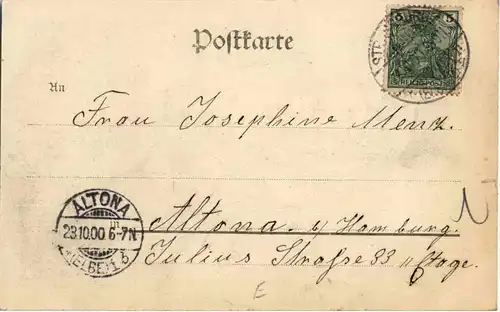 Postkarte
5 5
REICHSPOST
An
Frau Josephine Menz.
Altona b/ Hamburg.
Julius Straße 33 II Etage.
ALTONA
23.10.00 6-7N
(ELBE) 1 b
E